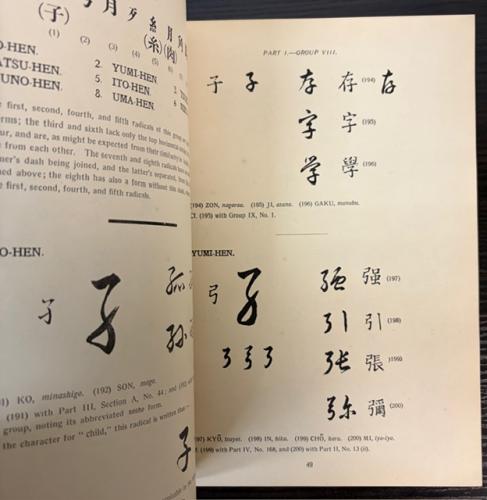 月 歹 糸 月
(子) (糸)(肉)
(1) (2) (3) (4) (5)
-HEN. 2. YUMI-HEN.
-HEN. 5. ITO-HEN.
-HEN. 8. UMA-HEN.
first, second, fourth, and fifth radicals of this
the third and sixth lack only the top horizontal
and are, as might be expected from their
from each other. The seventh and eighth radicals
dash being joined, and the latter's separated,
above; the eighth has also a form without this dash,
first, second, fourth, and fifth radicals.
-HEN.
子 子 孤
孫
KO, minashigo. (192) SON, mago.
(191) with Part III, Section A, No. 44; and 192
group, noting its abbreviated form
the character for "child," this radical is written
子
PART I.—GROUP VIII.
子 子 存 存 (194) 存
字 字 (195)
学 學 (196)
(194) ZON, nagarau. (195) JI, azana. (196) GAKU, manabu.
(195) with Group IX, No. 1.
YUMI-HEN.
弓 弓 强 强 (197)
引 引 (198)
弓 弓 弓 張 張 (199)
弥 彌 (200)
(197) KYŌ, tsuyoi. (198) IN, hiku. (199) CHŌ, haru. (200) MI, iya-iyo.
(199) with Part IV, No. 168, and (200) with Part II, No. 13 (ii).
49